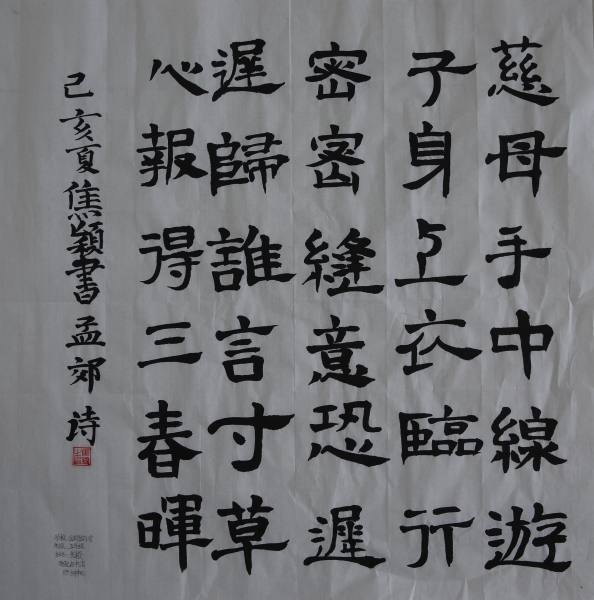 慈母手中線遊
子身上衣臨行
密密縫意恐遲
遲歸誰言寸草
心報得三春暉
己亥夏焦穎書孟郊诗